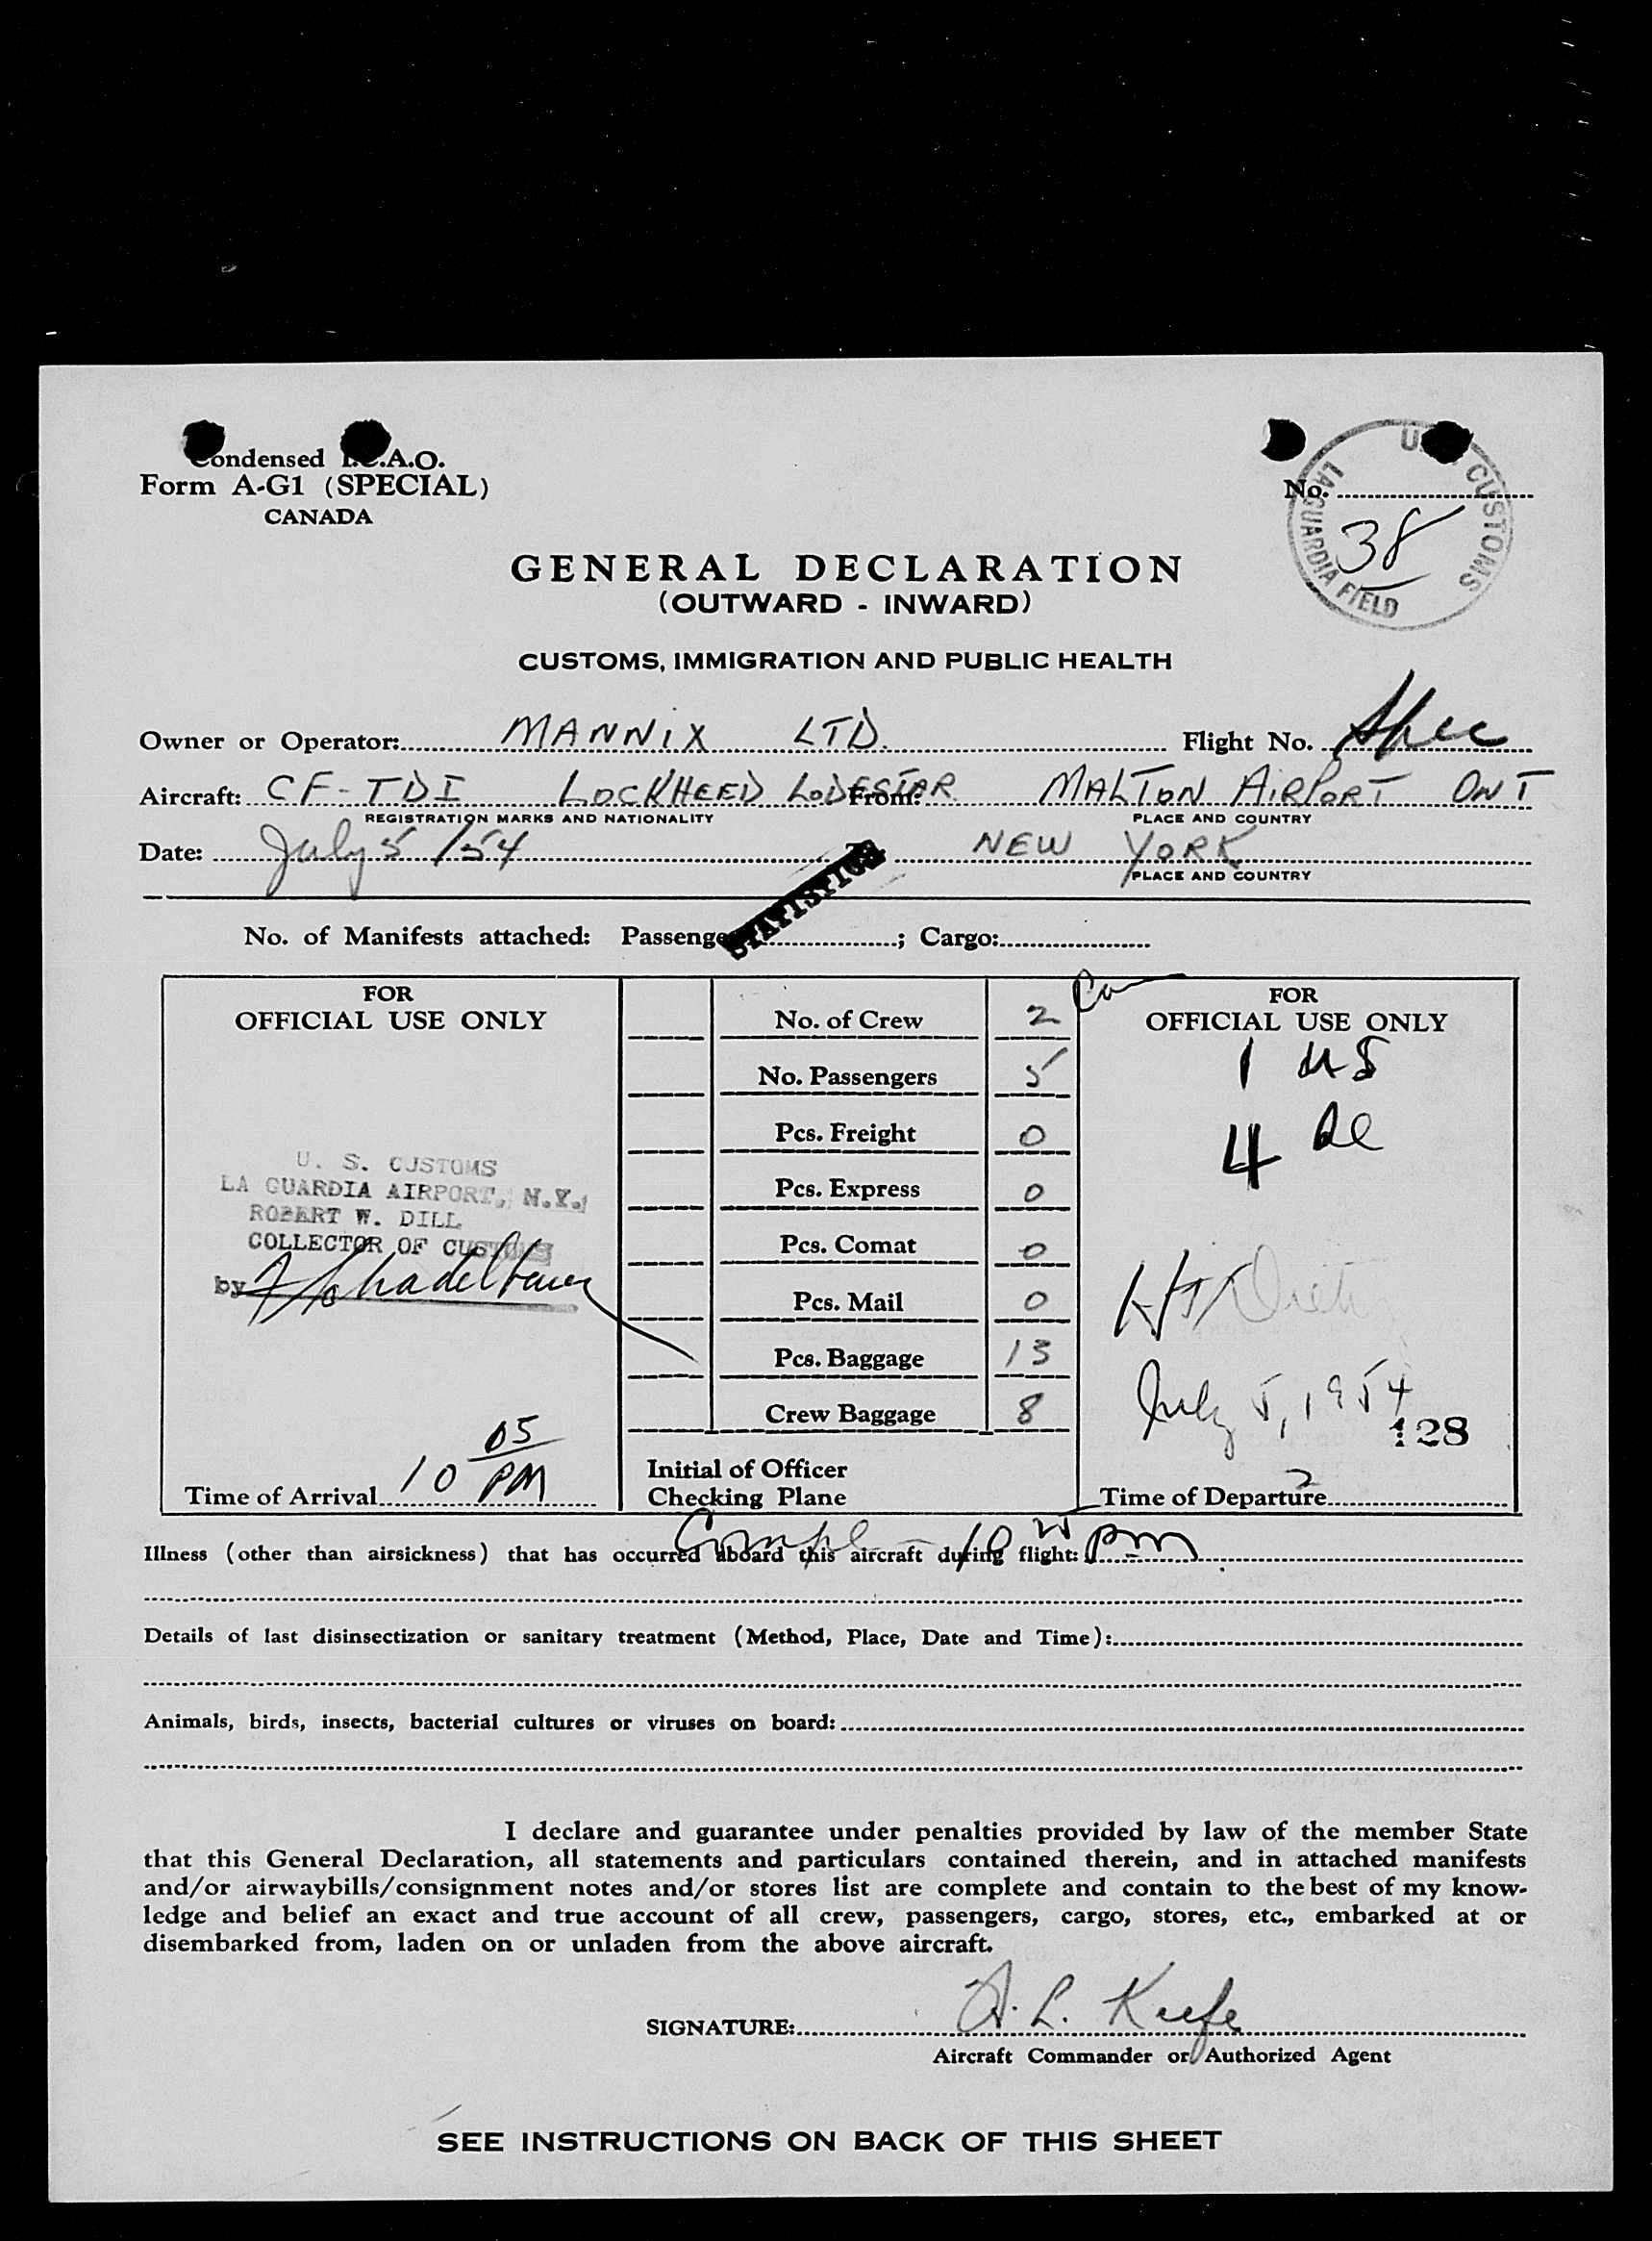 Condensed I.C.A.O.
Form A-G1 (SPECIAL)
CANADA
No.
U.S. CUSTOMS
LA GUARDIA FIELD
38
GENERAL DECLARATION
(OUTWARD - INWARD)
CUSTOMS, IMMIGRATION AND PUBLIC HEALTH
Owner or Operator: MANNIX LTD. Flight No. Spec
Aircraft: CF-TDI LOCKHEED LODESTAR From: MALTON AIRPORT ONT
REGISTRATION MARKS AND NATIONALITY PLACE AND COUNTRY
Date: July 5/54 NEW YORK
PLACE AND COUNTRY
STATISTICS
No. of Manifests attached: Passenger ; Cargo:
FOR
OFFICIAL USE ONLY
U. S. CUSTOMS
LA GUARDIA AIRPORT, N.Y.
ROBERT W. DILL
COLLECTOR OF CUSTOMS
by
Time of Arrival 10 05 PM
No. of Crew 2
No. Passengers 5
Pcs. Freight 0
Pcs. Express 0
Pcs. Comat 0
Pcs. Mail 0
Pcs. Baggage 13
Crew Baggage 8
Initial of Officer
Checking Plane
FOR
OFFICIAL USE ONLY
1 US
4
July 5, 1954
128
Time of Departure
Compl - 10 pm
Illness (other than airsickness) that has occurred aboard this aircraft during flight:
Details of last disinsectization or sanitary treatment (Method, Place, Date and Time):
Animals, birds, insects, bacterial cultures or viruses on board:
I declare and guarantee under penalties provided by law of the member State
that this General Declaration, all statements and particulars contained therein, and in attached manifests
and/or airwaybills/consignment notes and/or stores list are complete and contain to the best of my know-
ledge and belief an exact and true account of all crew, passengers, cargo, stores, etc., embarked at or
disembarked from, laden on or unladen from the above aircraft.
SIGNATURE: A. L. Keefe
Aircraft Commander or Authorized Agent
SEE INSTRUCTIONS ON BACK OF THIS SHEET